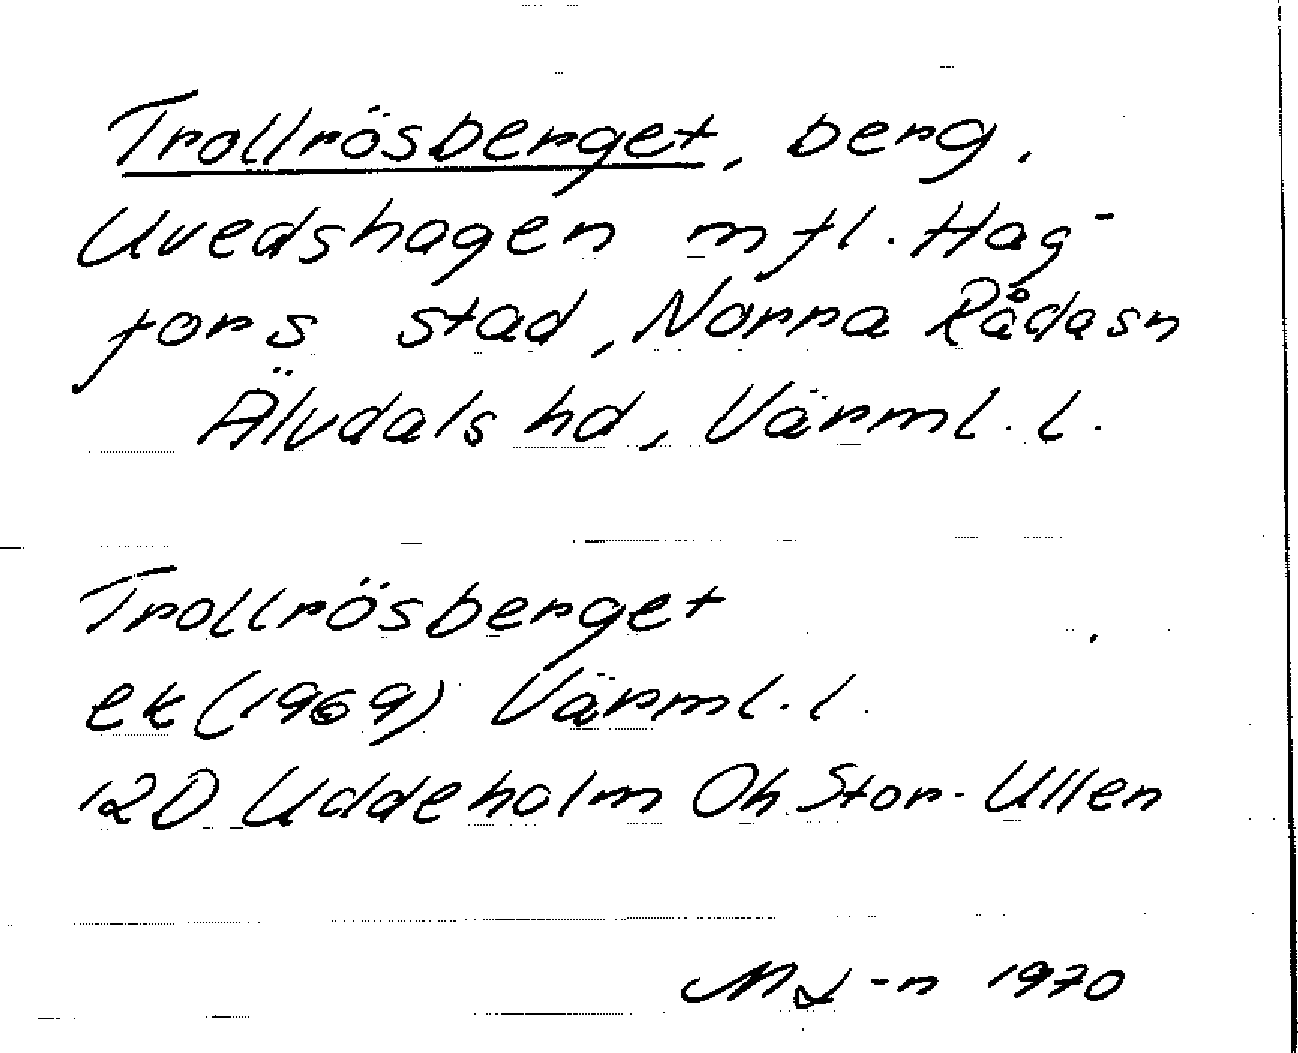 Trollrösberget, berg.
Uvedshagen m fl. Hag-
fors stad, Norra Rådasn
Älvdals hd, Värml. l.
Trollrösberget
ek (1969) Värml. l.
12D Uddeholm Oh Stor-Ullen
1970